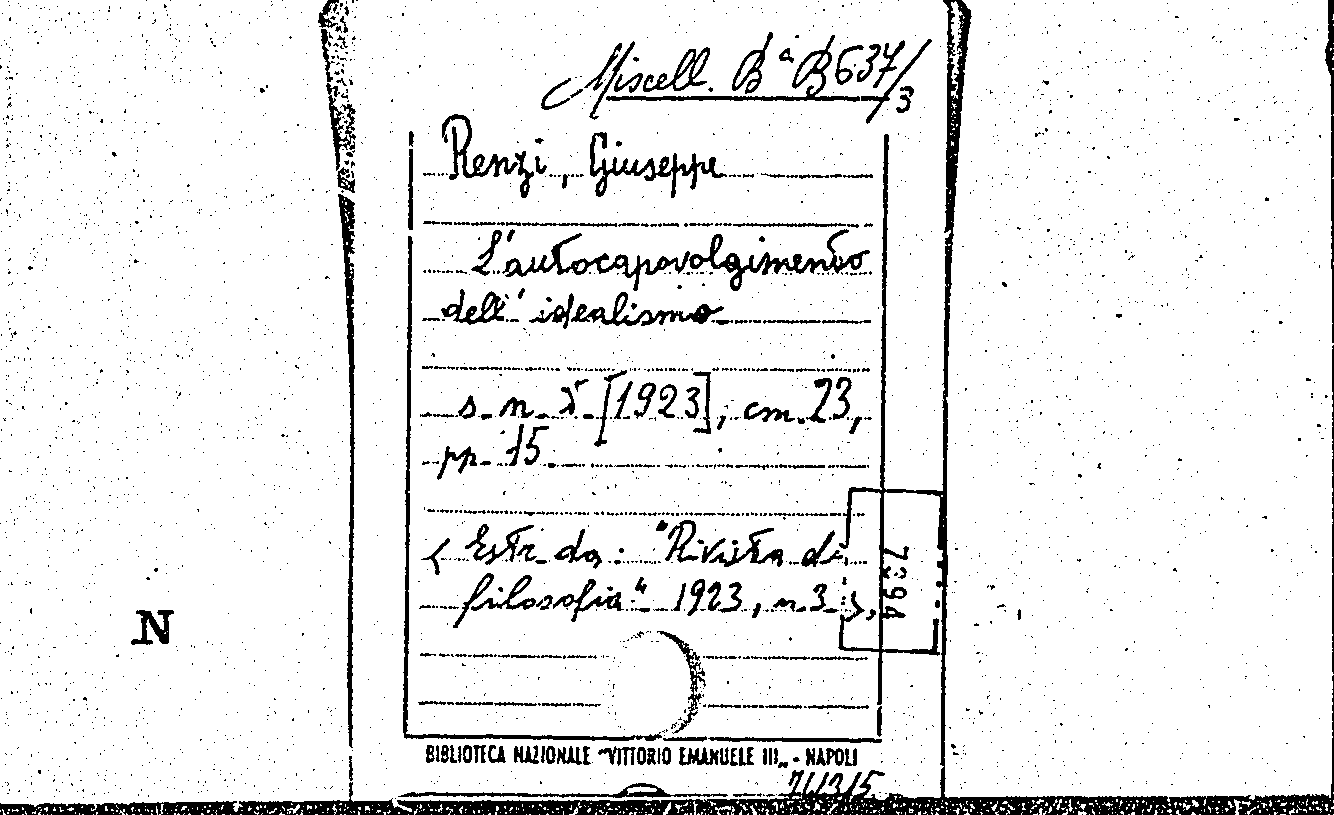 Miscell. Bª B 637/3
Renzi, Giuseppe
L'autocapovolgimento
dell' idealismo
s. n. t. [1923], cm. 23,
pp. 15.
( Estr. da: "Rivista di
filosofia" 1923, n. 3 ),
7394
N
BIBLIOTECA NAZIONALE "VITTORIO EMANUELE III„ - NAPOLI